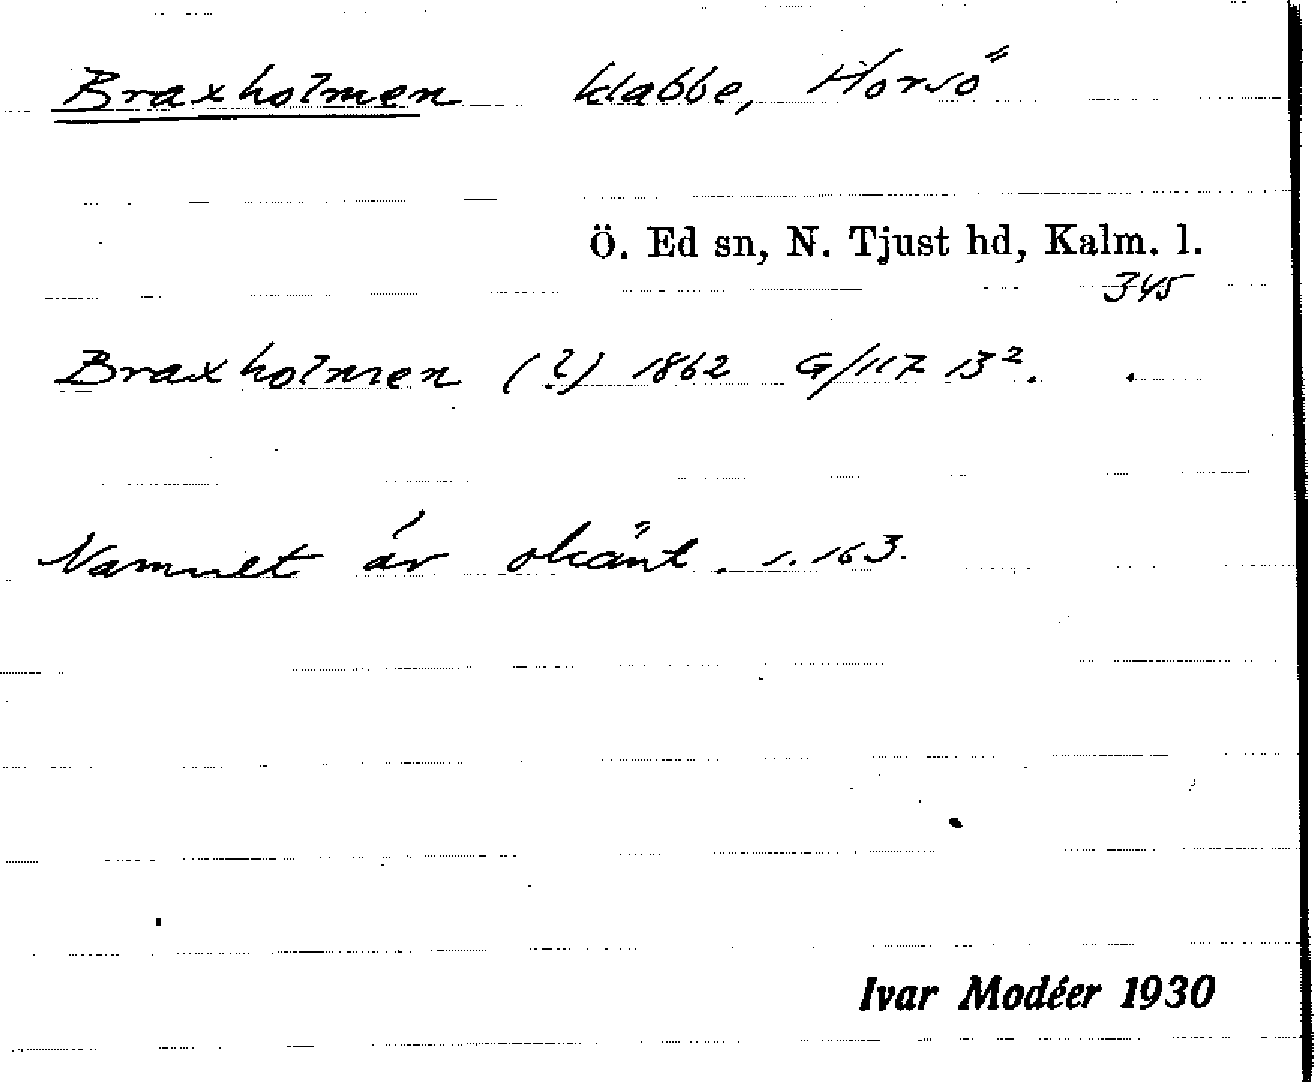 Braxholmen klabbe, Horsö
Ö. Ed sn, N. Tjust hd, Kalm. l.
345
Braxholmen (?) 1862 G/117 13².
Namnet är okänt. s. 163.
Ivar Modéer 1930